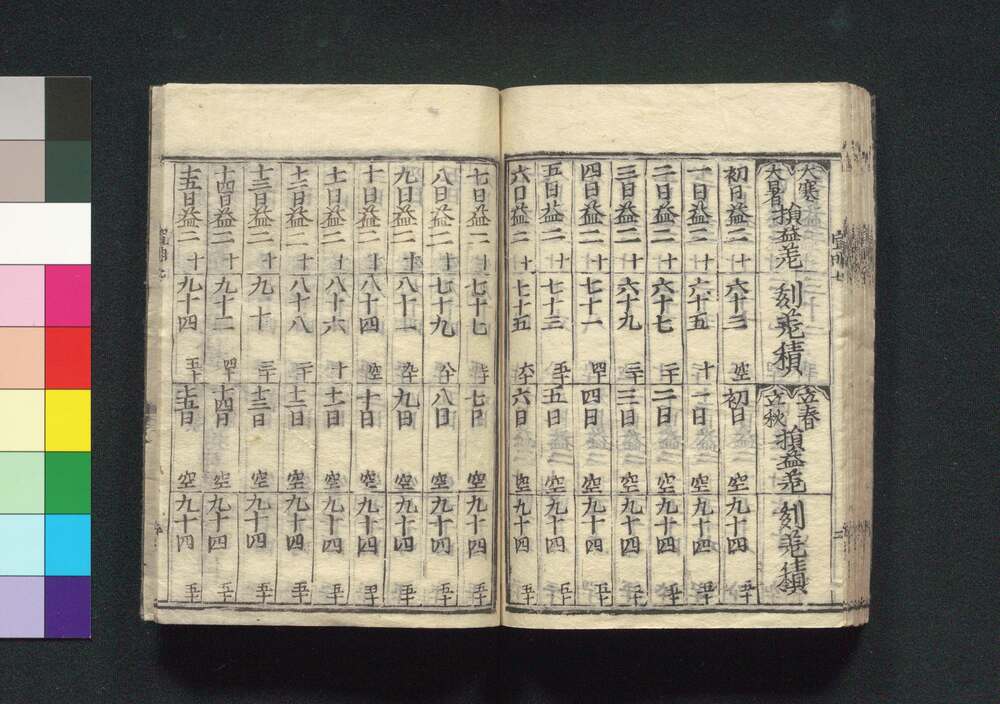 大寒
大暑
損益差
刻差積
立春
立秋
損益差
刻差積
初日益二十 六十三空 初日空 九十四五十
一日益二十 六十五十 一日空 九十四五十
二日益二十 六十七二十 二日空 九十四五十
三日益二十 六十九三十 三日空 九十四五十
四日益二十 七十一四十 四日空 九十四五十
五日益二十 七十三五十 五日空 九十四五十
六日益二十 七十五六十 六日空 九十四五十
七日益二十 七十七七十 七日空 九十四五十
八日益二十 七十九八十 八日空 九十四五十
九日益二十 八十一九十 九日空 九十四五十
十日益二十 八十四空 十日空 九十四五十
十一日益二十 八十六十 十一日空 九十四五十
十二日益二十 八十八二十 十二日空 九十四五十
十三日益二十 九十三十 十三日空 九十四五十
十四日益二十 九十二四十 十四日空 九十四五十
十五日益二十 九十四五十 十五日空 九十四五十